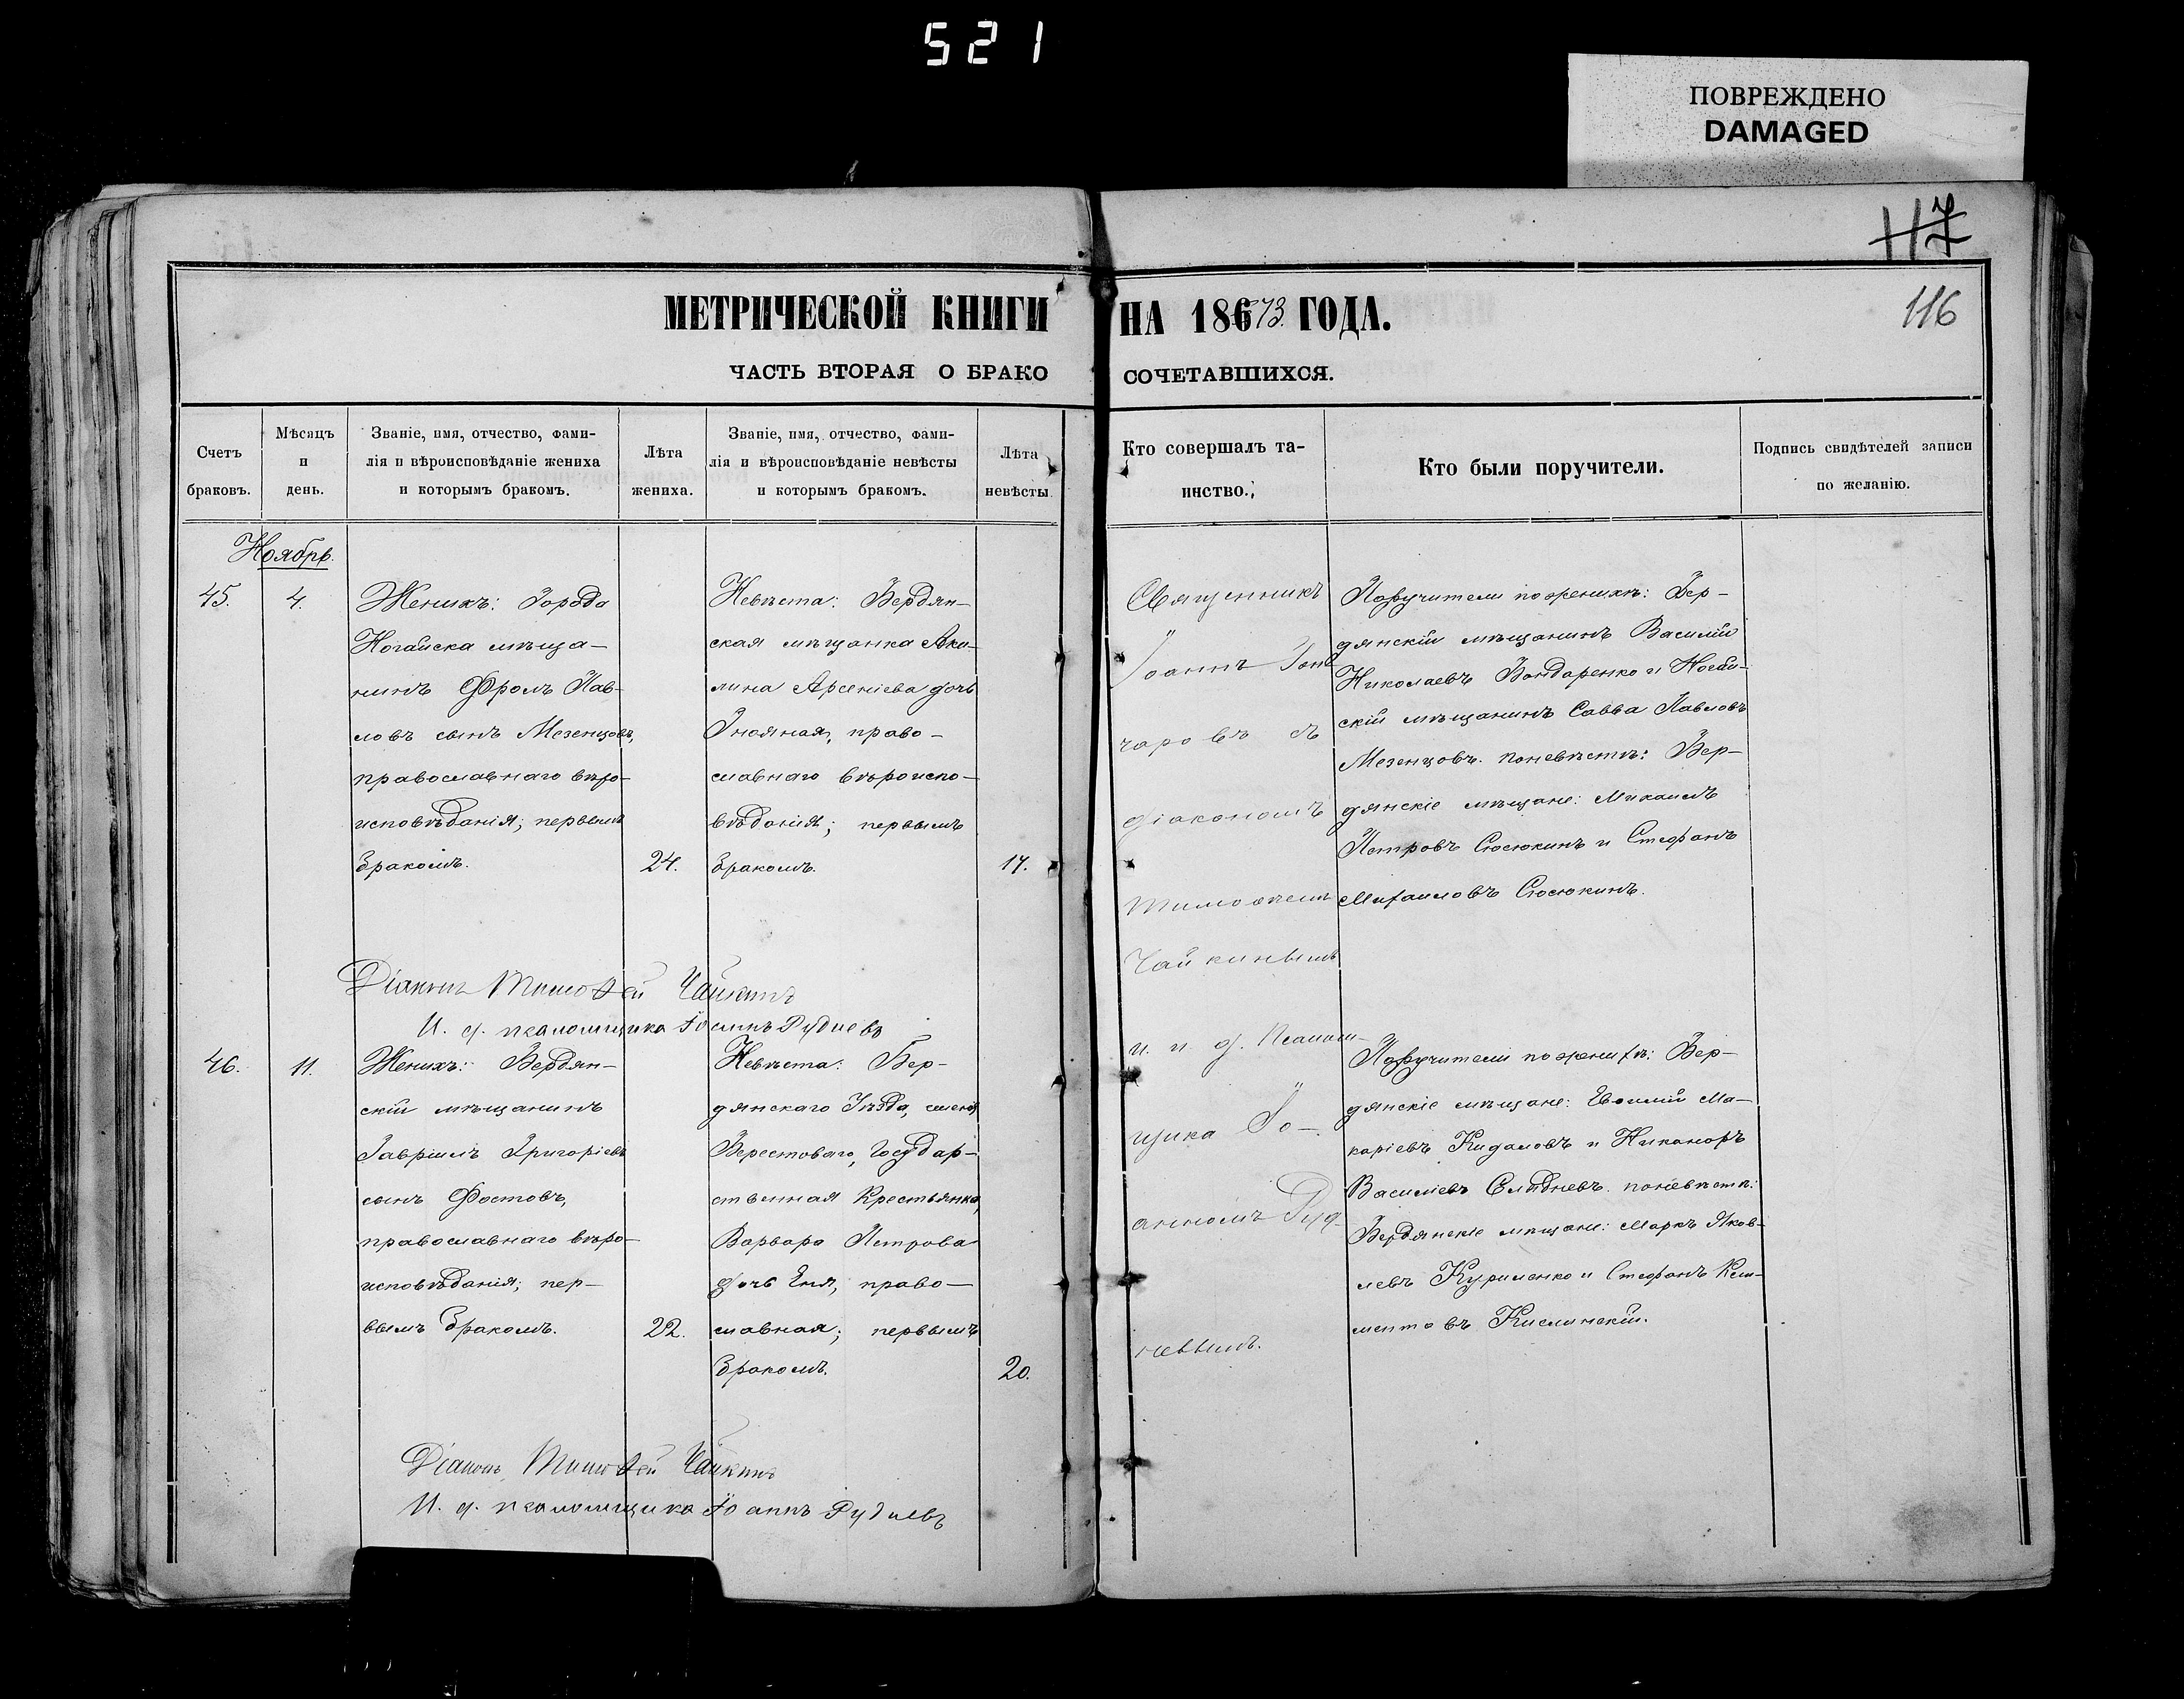 521
ПОВРЕЖДЕНО
DAMAGED
117
116
МЕТРИЧЕСКОЙ КНИГИ НА 1873 ГОДА.
ЧАСТЬ ВТОРАЯ О БРАКОСОЧЕТАВШИХСЯ.
Счетъ браковъ.
Мѣсяцъ и день.
Званіе, имя, отчество, фами-
лія и вѣроисповѣданіе жениха
и которымъ бракомъ.
Лѣта жениха.
Званіе, имя, отчество, фами-
лія и вѣроисповѣданіе невѣсты
и которымъ бракомъ.
Лѣта невѣсты
Кто совершалъ та-
инство.
Кто были поручители.
Подпись свидѣтелей записи
по желанію.
Ноябрь.
45.
4.
Женихъ: Города
Ногайска мѣща-
нинъ Фролъ Пав-
ловъ сынъ Мезенцовъ,
православнаго вѣро-
исповѣданія; первымъ
бракомъ.
24.
Невѣста: Бердян-
ская мѣщанка Аки-
лина Арсеніева дочь
право-
славнаго вѣроиспо-
вѣданія; первымъ
бракомъ.
17.
Священникъ
Іоаннъ Гон
чаровъ съ
діакономъ
Тимоѳеемъ
Чайкинымъ
Поручители по женихѣ: Бер-
дянскій мѣщанинъ Василій
Николаевъ Бондаренко и Ногай-
скій мѣщанинъ Савва Павловъ
Мезенцовъ. по невѣстѣ: Бер-
дянскіе мѣщане: Михаилъ
Петровъ Сюсюкинъ и Стефанъ
Михаиловъ Сюсюкинъ.
Діаконъ Тимоѳей Чайкинъ
И. д. псаломщика Іоаннъ Рудневъ
46.
11.
Женихъ: Бердян-
скій мѣщанинъ
Гавріилъ Григоріевъ
сынъ Фостовъ,
православнаго вѣро-
исповѣданія; пер-
вымъ бракомъ.
22.
Невѣста: Бер-
дянскаго Уѣзда, села
Берестоваго, Государ-
ственная Крестьянка,
Варвара Петрова
дочь право-
славная; первымъ
бракомъ.
20.
и. д. Псалом-
щика Іо-
анномъ Руд-
невымъ.
Поручители по женихѣ: Бер-
дянскіе мѣщане: Евѳимій Ма-
каріевъ Кидаловъ и Никаноръ
Василіевъ Слѣдневъ. по невѣстѣ:
Бердянскіе мѣщане: Маркъ Яков-
левъ Куриленко и Стефанъ Кли-
ментовъ Кислинскій.
Діаконъ Тимоѳей Чайкинъ
И. д. псаломщика Іоаннъ Рудневъ